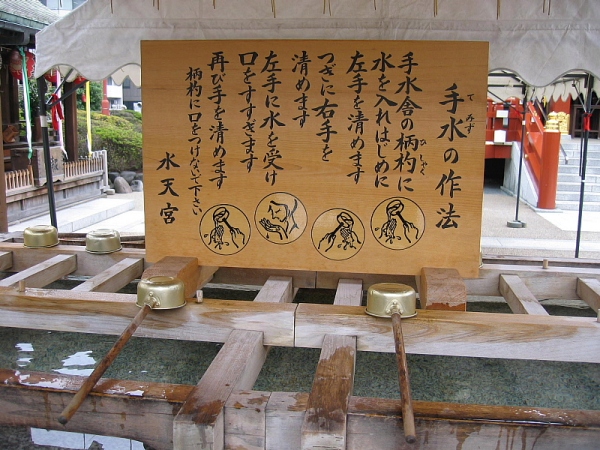 手水の作法
てみず
手水舎の柄杓に
ひしゃく
水を入れはじめに
左手を清めます
つぎに右手を
清めます
左手に水を受け
口をすすぎます
再び手を清めます
柄杓に口をつけないで下さい
水天宮